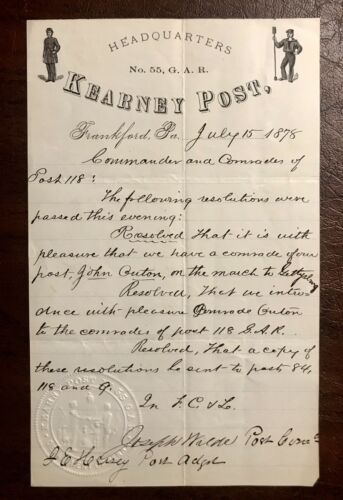 HEADQUARTERS
No. 55, G. A. R.
KEARNEY POST,
Frankford, Pa. July 15 1878
Commander and Comrades of
Post 118:
The following resolutions were
passed this evening:
Resolved That it is with
pleasure that we have a comrade of our
post, John Guton, on the march to Gettysburg
Resolved, That we intro
duce with pleasure Comrade Guton
to the comrades of post 118 G.A.R.
Resolved, That a copy of
these resolutions be sent to posts 84,
118 and 9.
In F. C. & L.
Joseph Wilde Post Com
Post Adjt